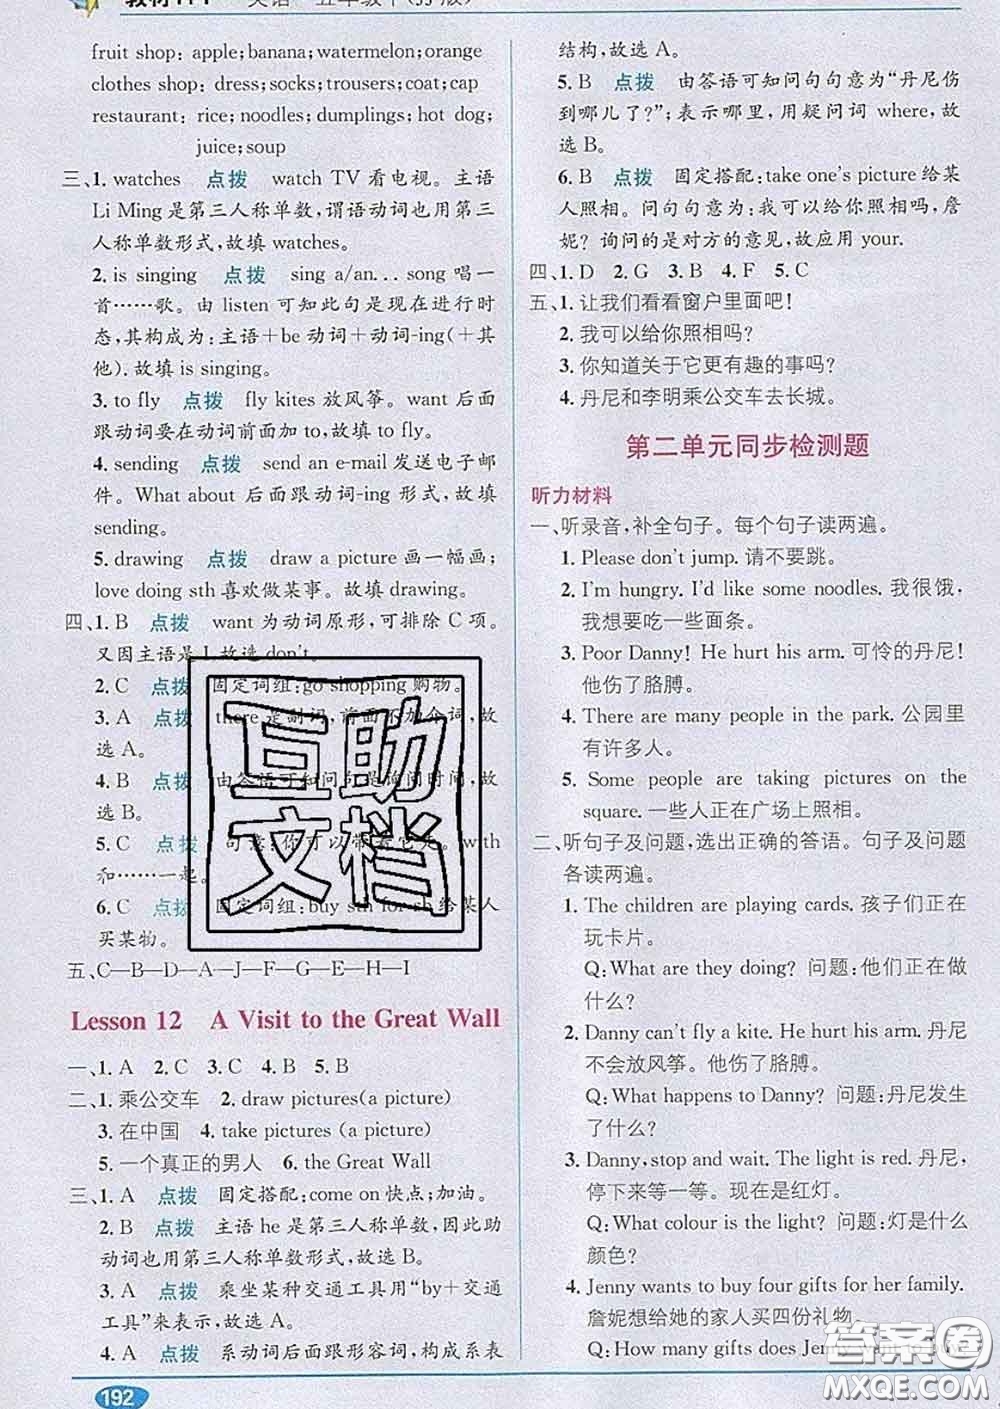 教材 1+1 英语 五年级下(JJ版)
fruit shop: apple;banana;watermelon;orange
clothes shop: dress;socks;trousers;coat;cap
restaurant: rice;noodles;dumplings;hot dog;
juice;soup
三、1. watches 点拨 watch TV 看电视。主语
Li Ming 是第三人称单数,谓语动词也用第三
人称单数形式,故填 watches。
2. is singing 点拨 sing a/an... song 唱一
首……歌。由 listen 可知此句是现在进行时
态,其构成为:主语+be 动词+动词-ing(+其
他). 故填 is singing.
3. to fly 点拨 fly kites 放风筝。want 后面
跟动词要在动词前面加 to,故填 to fly。
4. sending 点拨 send an e-mail 发送电子邮
件。What about 后面跟动词-ing 形式,故填
sending.
5. drawing 点拨 draw a picture 画一幅画;
love doing sth 喜欢做某事。故填 drawing。
四、1. B 点拨 want 为动词原形,可排除 C 项。
又因主语是 I,故选 don't。
2. C 点拨 固定词组:go shopping 购物。
3. A 点拨 there 是副词,前面不加介词,故
选 A。
4. B 点拨 由答语可知问句是询问时间,故
选 B。
5. C 点拨 句意:你可以带着它去。with
和……一起。
6. C 点拨 固定词组:buy sth for sb 给某人
买某物。
五、C—B—D—A—J—F—G—E—H—I
Lesson 12 A Visit to the Great Wall
一、1. A 2. C 3. C 4. B 5. B
二、1. 乘公交车 2. draw pictures(a picture)
3. 在中国 4. take pictures (a picture)
5. 一个真正的男人 6. the Great Wall
三、1. A 点拨 固定搭配:come on 快点;加油。
2. B 点拨 主语 he 是第三人称单数,因此助
动词也用第三人称单数形式,故选 B。
3. A 点拨 乘坐某种交通工具用“by+交通
工具”来表示,故选 A。
4. A 点拨 系动词后面跟形容词,构成系表
192
结构,故选 A。
5. B 点拨 由答语可知问句句意为“丹尼伤
到哪儿了?”;表示哪里,用疑问词 where,故
选 B。
6. B 点拨 固定搭配:take one's picture 给某
人照相。问句句意为:我可以给你照相吗,詹
妮? 询问的是对方的意见,故应用 your.
四、1. D 2. G 3. B 4. F 5. C
五、1. 让我们看看窗户里面吧!
2. 我可以给你照相吗?
3. 你知道关于它更有趣的事吗?
4. 丹尼和李明乘公交车去长城。
第二单元同步检测题
听力材料
一、听录音,补全句子。每个句子读两遍。
1. Please don't jump. 请不要跳。
2. I'm hungry. I'd like some noodles. 我很饿,
我想要吃一些面条。
3. Poor Danny! He hurt his arm. 可怜的丹尼!
他伤了胳膊。
4. There are many people in the park. 公园里
有许多人。
5. Some people are taking pictures on the
square. 一些人正在广场上照相。
二、听句子及问题,选出正确的答语。句子及问题
各读两遍。
1. The children are playing cards. 孩子们正在
玩卡片。
Q:What are they doing? 问题:他们正在做
什么?
2. Danny can't fly a kite. He hurt his arm. 丹尼
不会放风筝。他伤了胳膊。
Q:What happens to Danny? 问题:丹尼发生
了什么?
3. Danny,stop and wait. The light is red. 丹尼,
停下来等一等。现在是红灯。
Q:What colour is the light? 问题:灯是什么
颜色?
4. Jenny wants to buy four gifts for her family.
詹妮想给她的家人买四份礼物。
Q:How many gifts does Jenny
互助
文档
答案圈
MXQE.COM